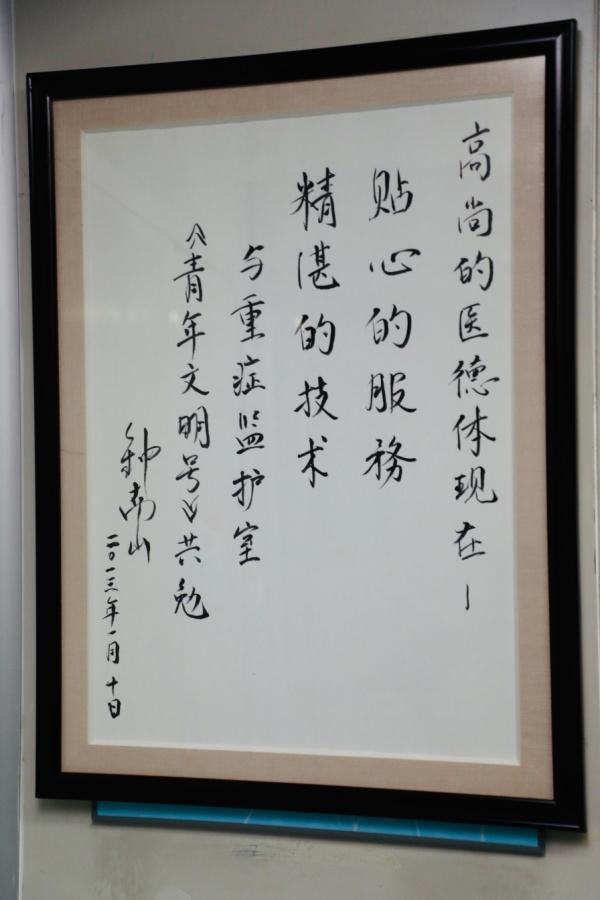 高尚的医德体现在—
贴心的服務
精湛的技术
与重症监护室
《青年文明号》共勉
钟南山
二〇一三年一月十日